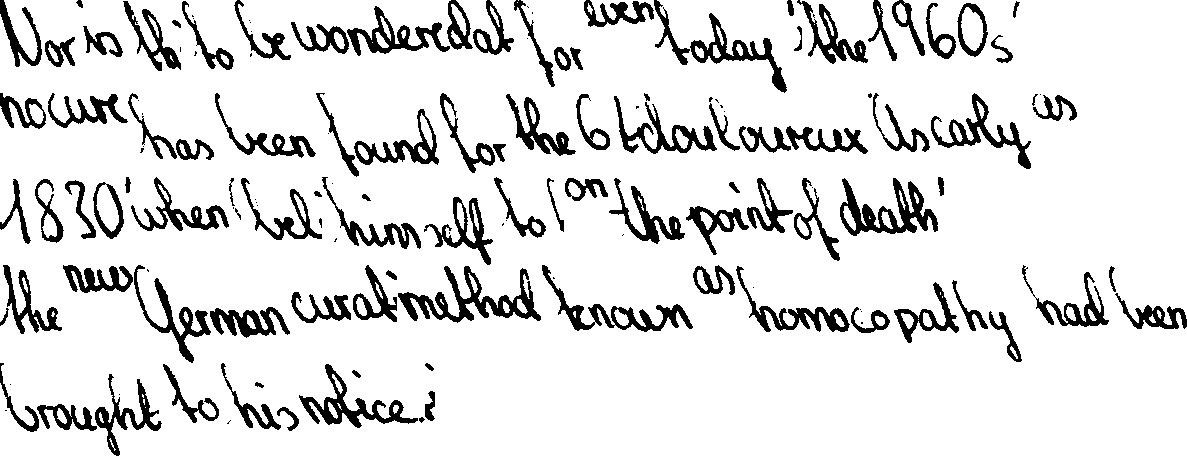 Nor is th' to be wondered at for even today 'the 1960s'
no cure has been found for the tdouloureux As early as
1830 'when himself to on the point of death'
the new German method known as homoeopathy had been
brought to his notice.